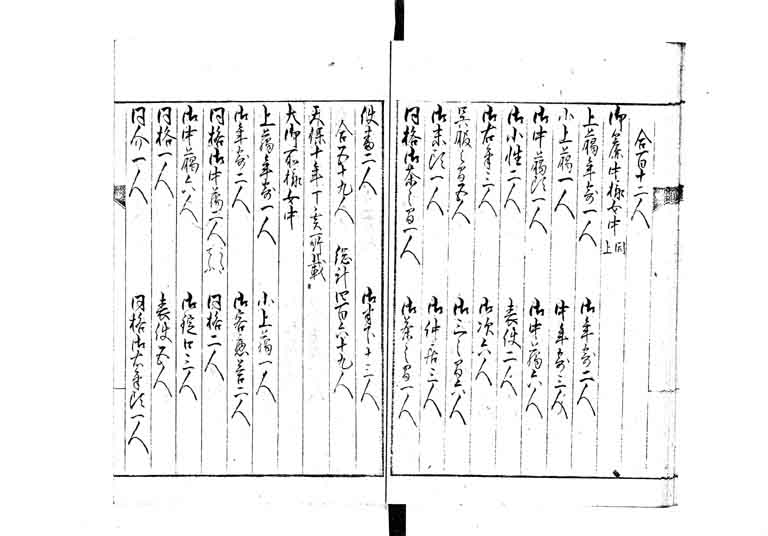 合百十二人
御簾中様女中 同上
上﨟年寄一人 御年寄二人
小上﨟一人 中年寄三人
御中﨟頭一人 御中﨟六人
御小性二人 表使二人
御右筆三人 御次六人
呉服之間五人 御三之間六人
御末頭一人 御仲居三人
同格御茶之間一人 御茶之間一人
使番二人 御末十三人
合五十九人 総計四百六十九人
天保十年丁亥所載
大御所様女中
上﨟年寄一人 小上﨟一人
御年寄二人 御客應答二人
同格御中﨟二人 同格二人
御中﨟六人 御錠口三人
同格一人 表使五人
同介一人 同格御右筆頭一人